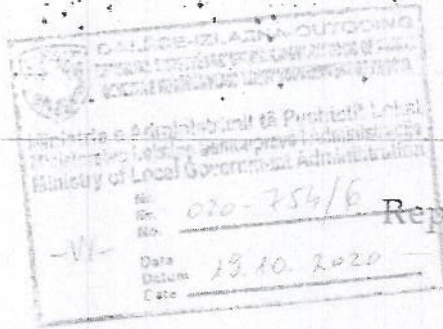 DALËSE-IZLAZNA-OUTGOING
Ministria e Administrimit të Pushtetit Lokal
Ministarstvo Lokalne Samouprave i Administracije
Ministry of Local Government Administration
Nr.
Br.
No. 020-754/6
-VI-
Rep
Data
Datum
Date 19.10.2020